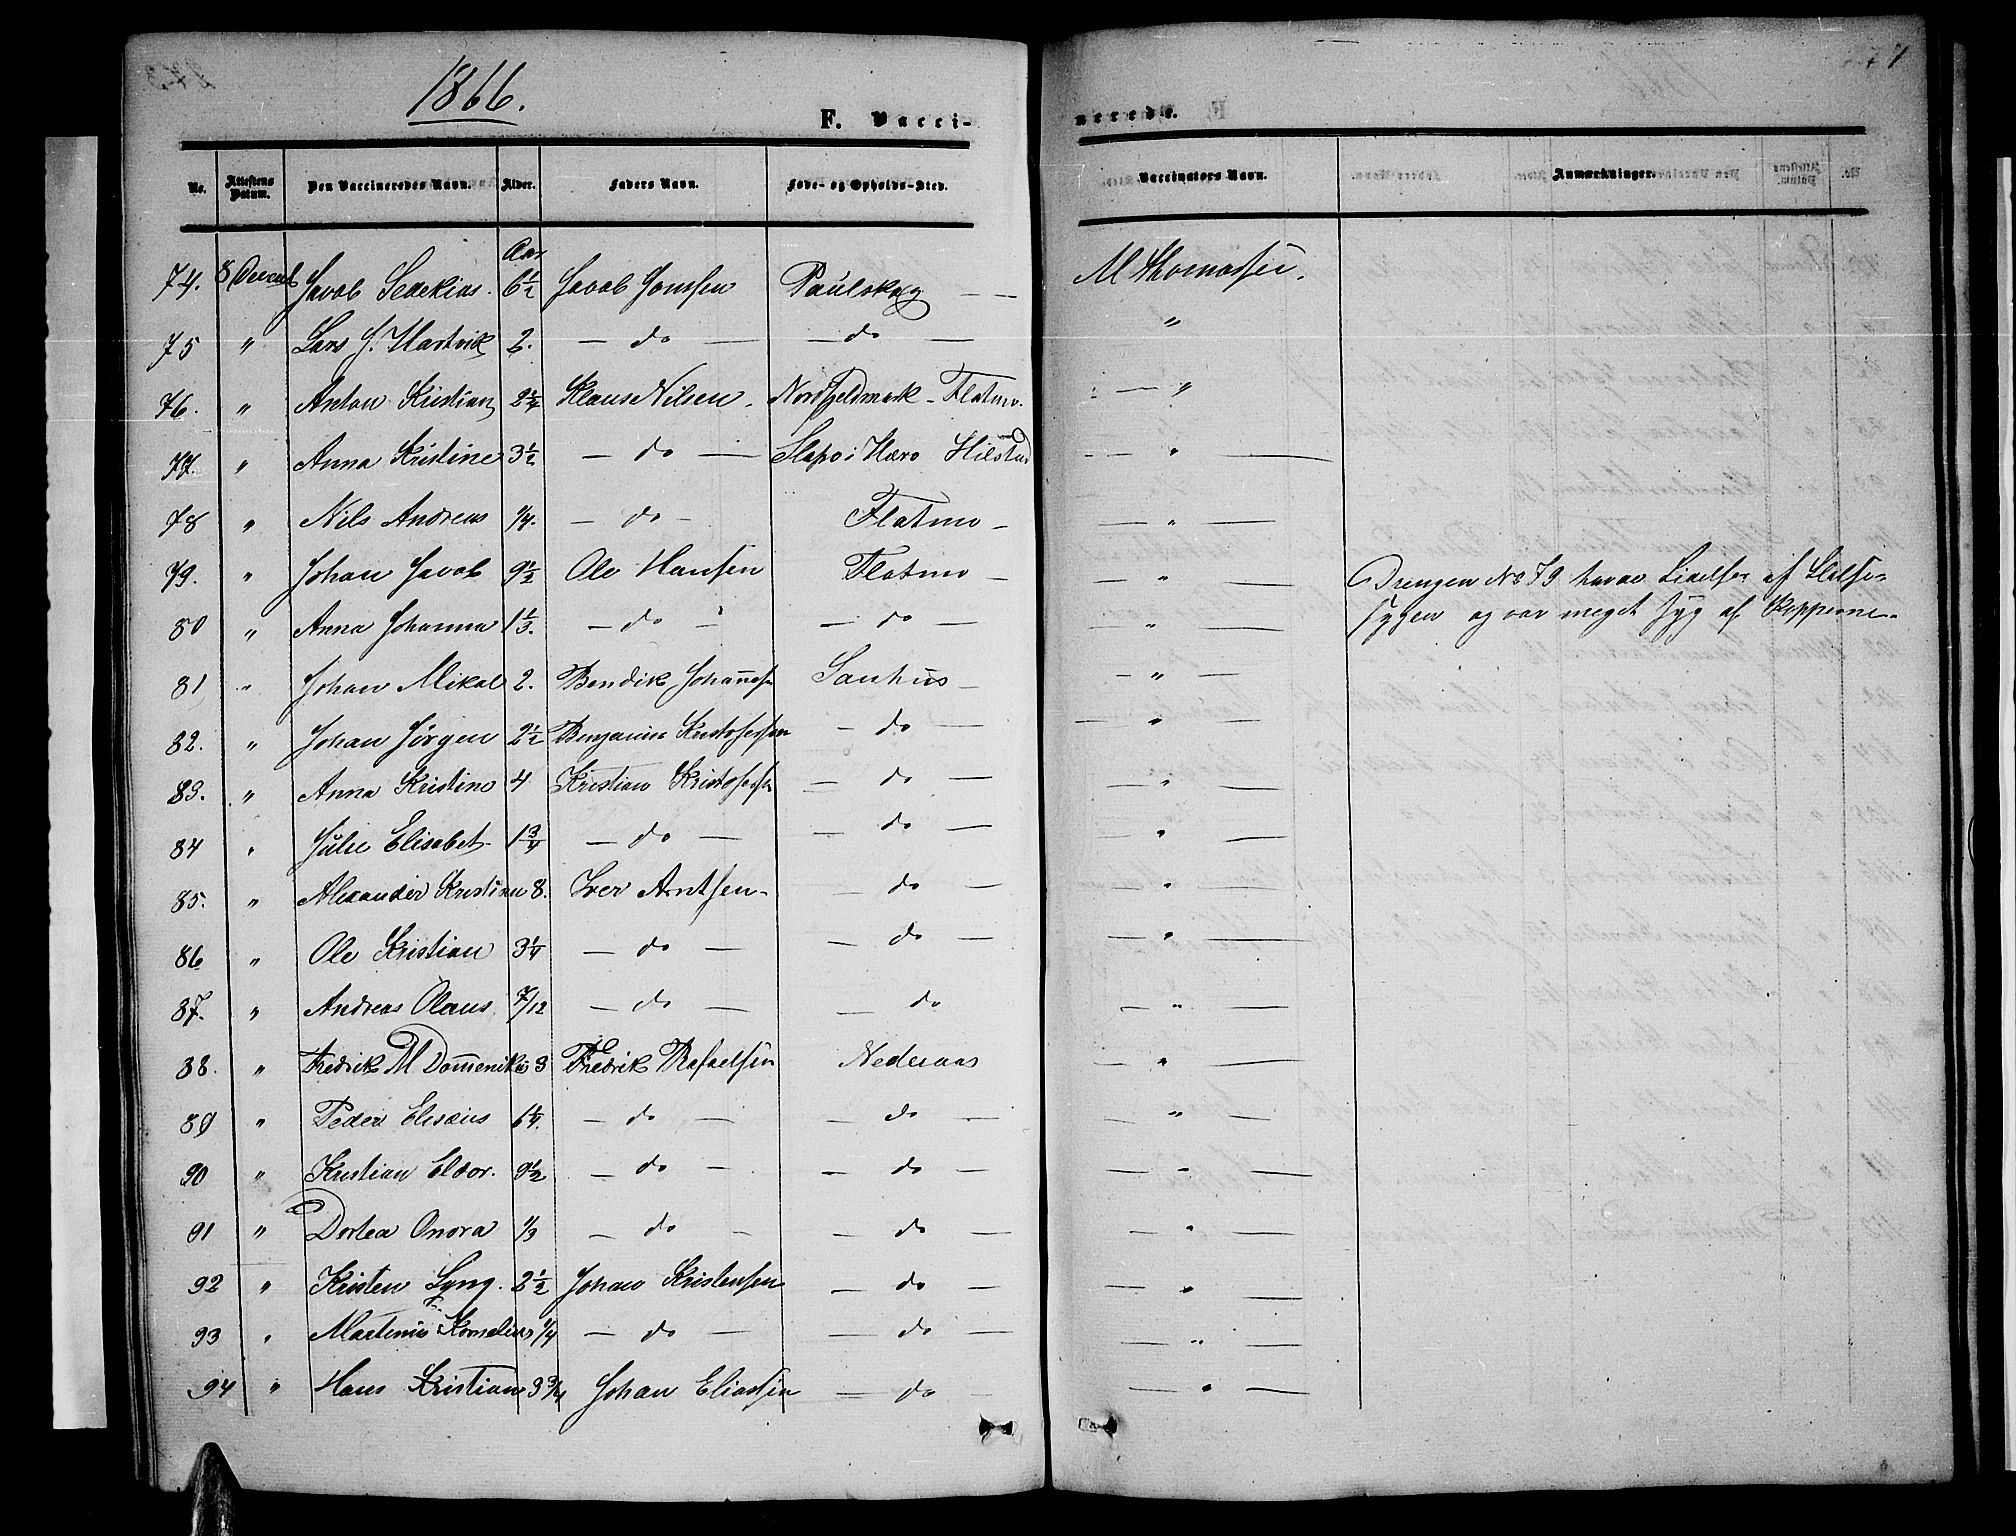 1866.
F. Vacci-
nerede.
No. Attestens Datum. Den Vaccineredes Navn. Alder. Faders Navn. Føde- og Opholds-Sted. Vaccinators Navn. Anmærkninger.
Aar
74. 8 Decemb Jacob Sedekias. 6 1/2 Jacob Jonssen Paulskag — — M Thomassen.
75 " Lars J. Hartvik 2. — do — — do — "
76. " Anton Kristian 2 3/4 Klaus Nilsen. Nordfjeldmark - Flatmo. — "
77. " Anna Kristine 3 1/2 — do — i Hærø Hilstad — " —
78 " Nils Andreas 1/4. — do - Flatmo — — " —
79. " Johan Jacob 9 1/2 Ole Hansen Flatmo — — " — Drengen No 79 havde Lidelse af
80 " Anna Johanna 1 1/3. — do — — do — — " — sygen og var meget syg af Kopperne.
81 " Johan Mikal 2. Bendik Johannes Sanhus — — " —
82. " Johan Jørgen 2 1/2 Benjamin Kristofersen — do — — " —
83. " Anna Kristine 4 Kristian Kristofers — do — — " —
84 " Julie Elisabet 1 3/4 — do — — do — — " —
85. " Alexander Kristian 8. Iver Arntsen — do — — " —
86 " Ole Kristian 3 1/4 — do — — do — — " —
87. " Andreas Olaus 7/12 — do — — do — " —
88. " Fredrik M Domenikus 3 Fredrik Rafaelsen Nederaas — " —
89 " Peder Elisæus 6 1/4. — do — — do — — " —
90 " Kristian Eldor. 9 1/2 — do — — do — — " —
91 " Dortea Onora 1/3 — do — — do — — " —
92 " Kristen Lyng. 2 1/2 Johan Kristensen — do — — " —
93 " Martenus Kornelius 1/4 — do — — do — — " —
94 " Hans Kristian 3 3/4 Johan Eliassen — do — — " —